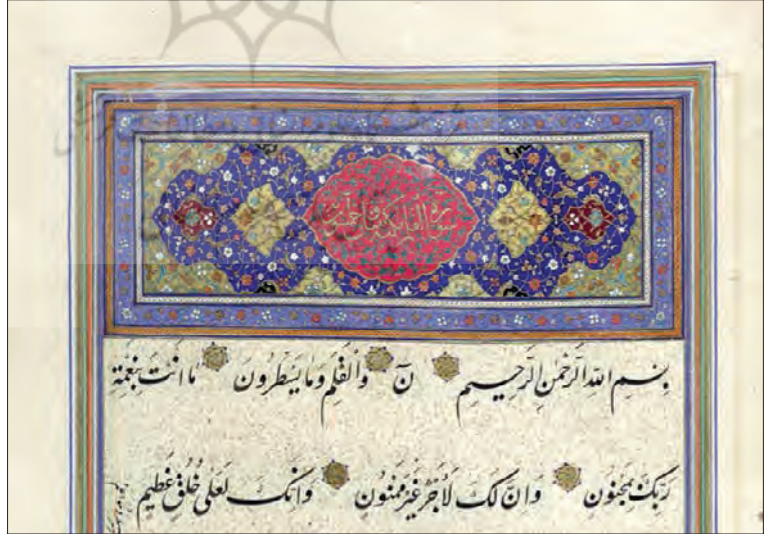 سورة القلم
بِسْمِ اللهِ الرَّحْمٰنِ الرَّحِيمِ نٓ وَالْقَلَمِ وَمَا يَسْطُرُونَ مَا اَنْتَ بِنِعْمَةِ
رَبِّكَ بِمَجْنُونٍ وَاِنَّ لَكَ لَاَجْرًا غَيْرَ مَمْنُونٍ وَاِنَّكَ لَعَلٰى خُلُقٍ عَظِيمٍ